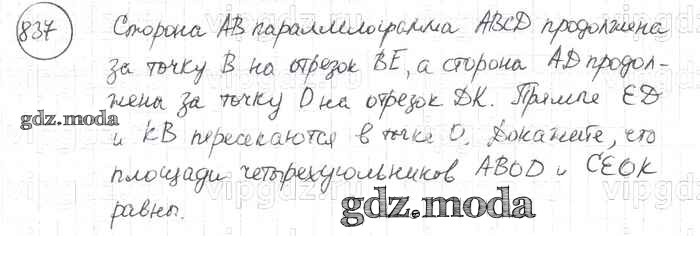 837 Сторона AB параллелограмма ABCD продолжена
за точку B на отрезок BE, а сторона AD продол-
жена за точку D на отрезок DK. Прямые ED
и KB пересекаются в точке O. Докажите, что
площади четырехугольников ABOD и CEOK
равны.
gdz.moda
gdz.moda